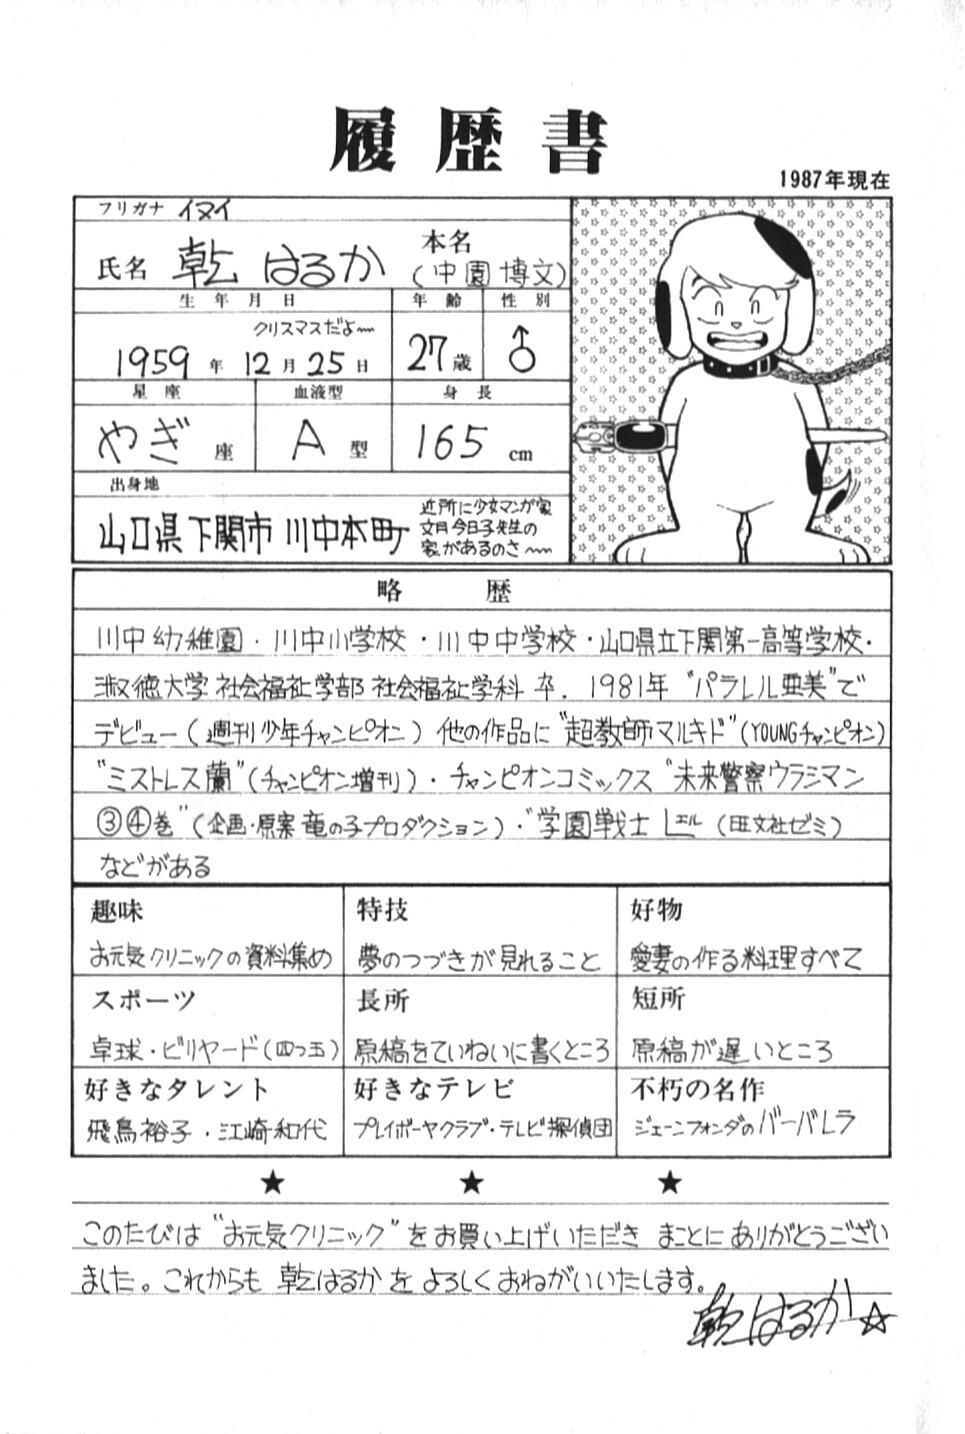 履歴書
1987年現在
フリガナ イヌイ
氏名 乾 はるか 本名
(中園博文)
生年月日 年齢 性別
クリスマスだよ〜
1959年 12月 25日 27歳 ♂
星座 血液型 身長
やぎ座 A型 165cm
出身地
山口県下関市川中本町
近所に少女マンガ家
文月今日子先生の
家があるのさ〜
略歴
川中幼稚園・川中小学校・川中中学校・山口県立下関第一高等学校・
淑徳大学社会福祉学部社会福祉学科卒. 1981年“パラレル亜美”で
デビュー(週刊少年チャンピオン)他の作品に“超教師マルキド”(YOUNGチャンピオン)
“ミストレス蘭”(チャンピオン増刊)・チャンピオンコミックス“未来警察ウラシマン
③④巻”(企画・原案 竜の子プロダクション)・“学園戦士L エル(旺文社ゼミ)
などがある
趣味 特技 好物
お元気クリニックの資料集め 夢のつづきが見れること 愛妻の作る料理すべて
スポーツ 長所 短所
卓球・ビリヤード(四つ玉) 原稿をていねいに書くところ 原稿が遅いところ
好きなタレント 好きなテレビ 不朽の名作
飛鳥裕子・江崎和代 プレイボーヤクラブ・テレビ探偵団 ジェーンフォンダのバーバレラ
★ ★ ★
このたびは“お元気クリニック”をお買い上げいただき まことにありがとうござい
ました。これからも 乾はるかを よろしくおねがいいたします。
乾はるか☆